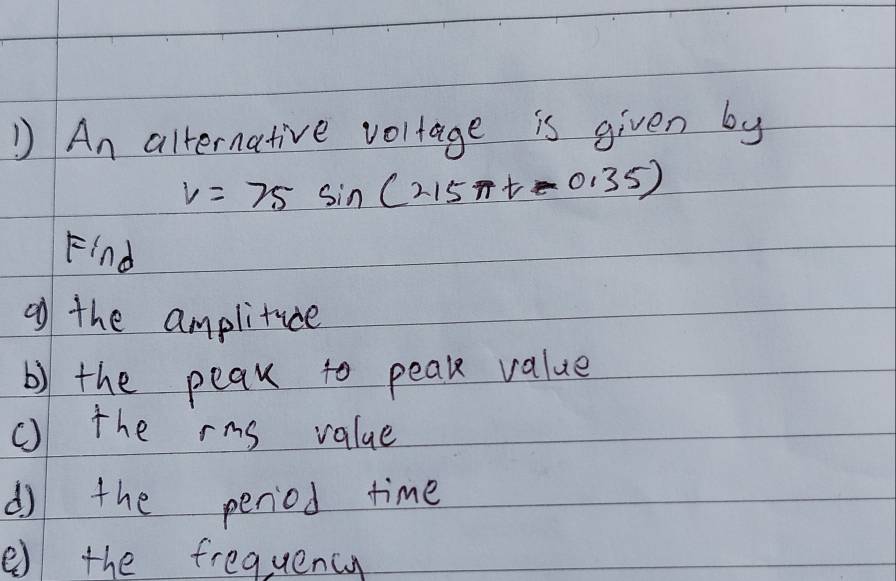 1) An alternative voltage is given by
v = 75 sin (215πt - 0.35)
Find
a) the amplitude
b) the peak to peak value
c) the rms value
d) the period time
e) the frequency